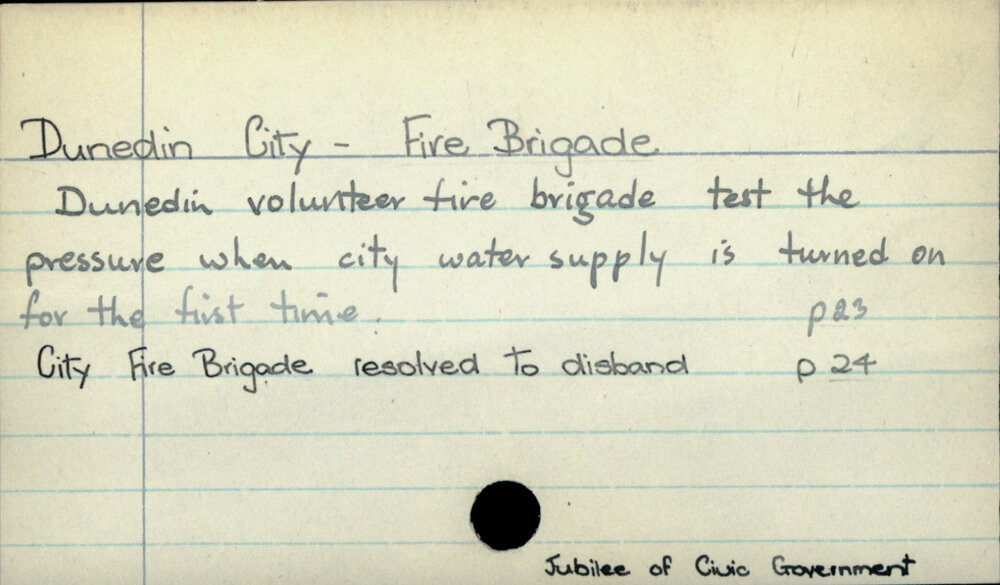 Dunedin City - Fire Brigade
Dunedin volunteer fire brigade test the
pressure when city water supply is turned on
for the first time. p23
City Fire Brigade resolved to disband p 24
Jubilee of Civic Government